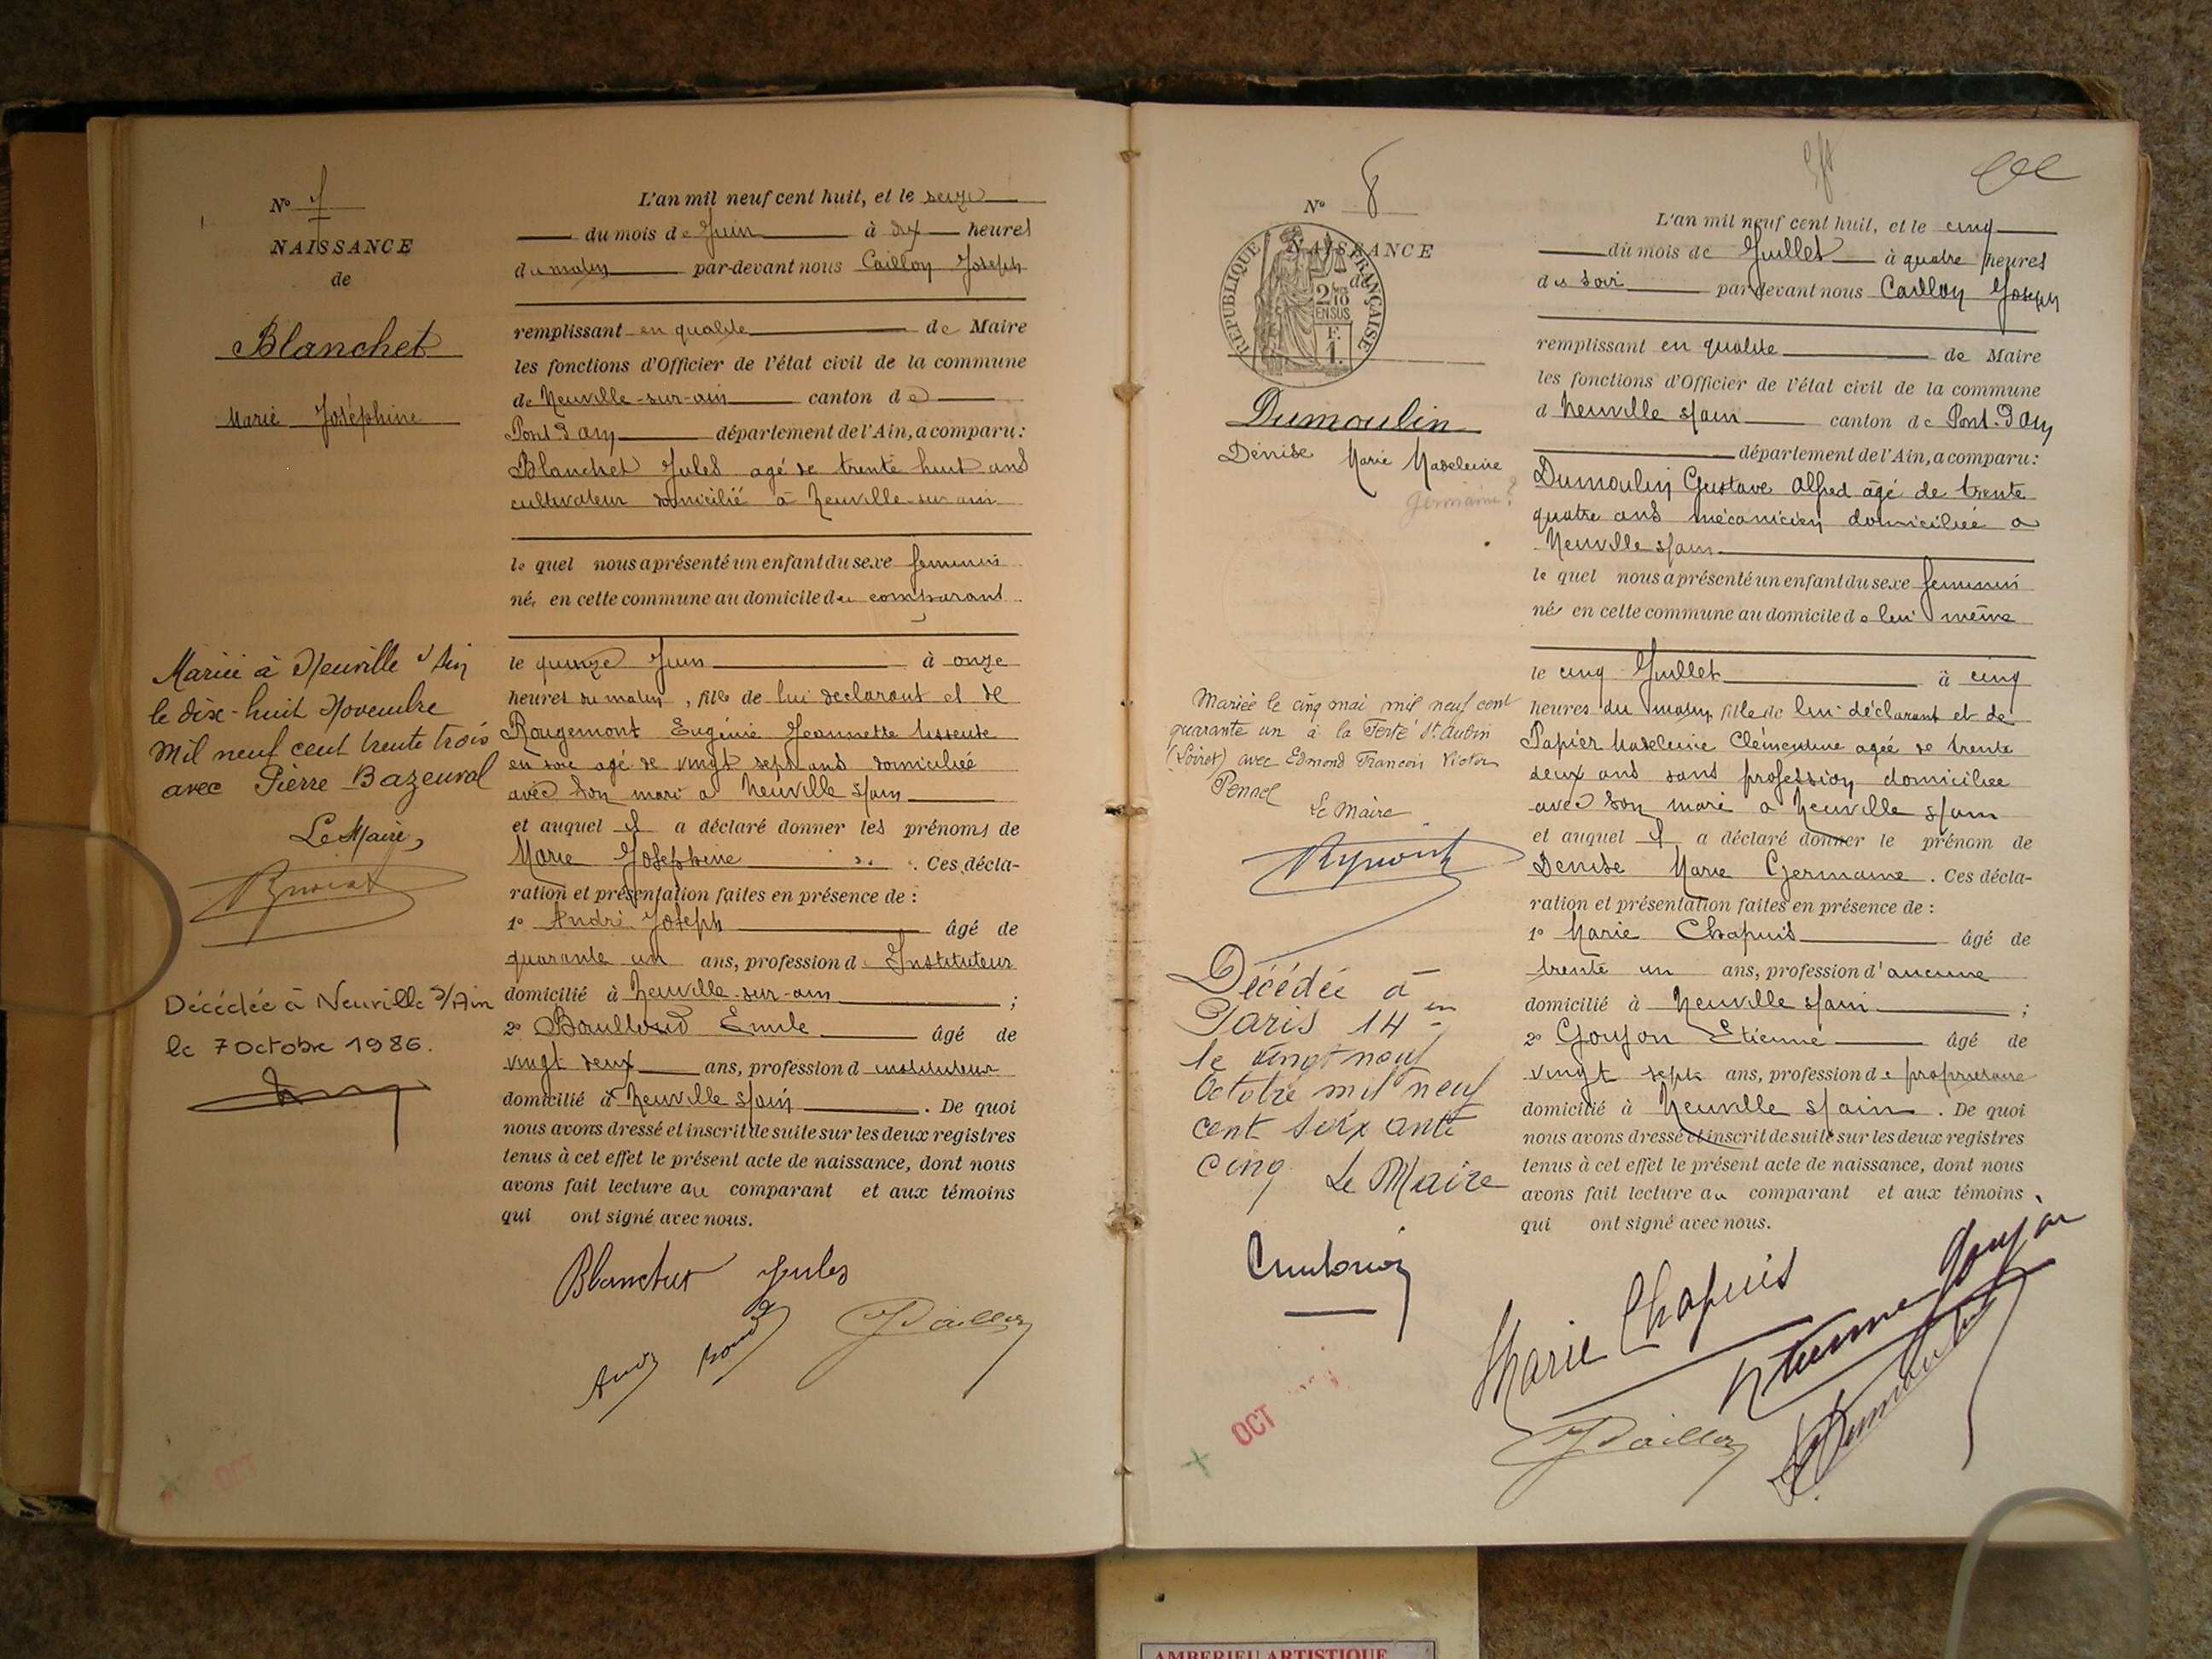 N° 7
NAISSANCE
de
Blanchet
Marie Joséphine
Mariée à Neuville s/Ain
le dix-huit Novembre
Mil neuf cent trente trois
avec Pierre Bazeural
Le Maire,
Décédée à Neuville s/Ain
le 7 octobre 1986.
L'an mil neuf cent huit, et le seize
du mois de Juin à dix heures
du matin par-devant nous Caillon Joseph
remplissant en qualité de Maire
les fonctions d'Officier de l'état civil de la commune
de Neuville-sur-ain canton de
Pont d'Ain département de l'Ain, a comparu:
Blanchet Jules agé de trente huit ans
cultivateur domicilié à Neuville-sur-ain
le quel nous a présenté un enfant du sexe feminin
né, en cette commune au domicile du comparant
le quinze Juin à onze
heures du matin, fille de lui declarant et de
Rougemont Eugénie Jeannette tisseuse
en soie agé de vingt sept ans domiciliée
avec son mari a Neuville s/ain
et auquel il a déclaré donner les prénoms de
Marie Josephine . Ces décla-
ration et présentation faites en présence de :
1° André Joseph âgé de
quarante un ans, profession d Instituteur
domicilié à Neuville-sur-ain ;
2° Emile âgé de
vingt deux ans, profession d instituteur
domicilié à Neuville s/ain . De quoi
nous avons dressé et inscrit de suite sur les deux registres
tenus à cet effet le présent acte de naissance, dont nous
avons fait lecture au comparant et aux témoins
qui ont signé avec nous.
Blanchet Jules
JCaillon
OCT
N° 8
NAISSANCE
de
RÉPUBLIQUE FRANÇAISE
2/10
EN SUS
F.
1.
Dumoulin
Denise Marie Madeleine
Germaine?
Mariée le cinq mai mil neuf cent
quarante un à la Ferté St Aubin
(Loiret) avec Edmond François Victor
Pennel
Le Maire
Décédée à
Paris 14 em
le vingt neuf
Octobre mil neuf
cent soixante
cinq. Le Maire
OCT
L'an mil neuf cent huit, et le cinq
du mois de Juillet à quatre heures
du soir par-devant nous Caillon Joseph
remplissant en qualité de Maire
les fonctions d'Officier de l'état civil de la commune
d Neuville s/ain canton de Pont-d'Ain
département de l'Ain, a comparu:
Dumoulin Gustave Alfred âgé de trente
quatre ans mécanicien domiciliée a
Neuville s/ain
le quel nous a présenté un enfant du sexe feminin
né en cette commune au domicile de lui même
le cinq Juillet à cinq
heures du matin fille de lui déclarant et de
Papier Madeleine Clémentine agée de trente
deux ans sans profession domiciliee
avec son mari a Neuville s/ain
et auquel il a déclaré donner le prénom de
Denise Marie Germaine . Ces décla-
ration et présentation faites en présence de :
1° Marie Chapuis âgé de
trente un ans, profession d'aucune
domicilié à Neuville s/ain ;
2° Goujon Etienne âgé de
vingt sept ans, profession de propriétaire
domicilié à Neuville s/ain . De quoi
nous avons dressé et inscrit de suite sur les deux registres
tenus à cet effet le présent acte de naissance, dont nous
avons fait lecture au comparant et aux témoins
qui ont signé avec nous.
Marie Chapuis
Etienne Goujon
JCaillon
Dumoulin
AMBERIEU ARTISTIQUE